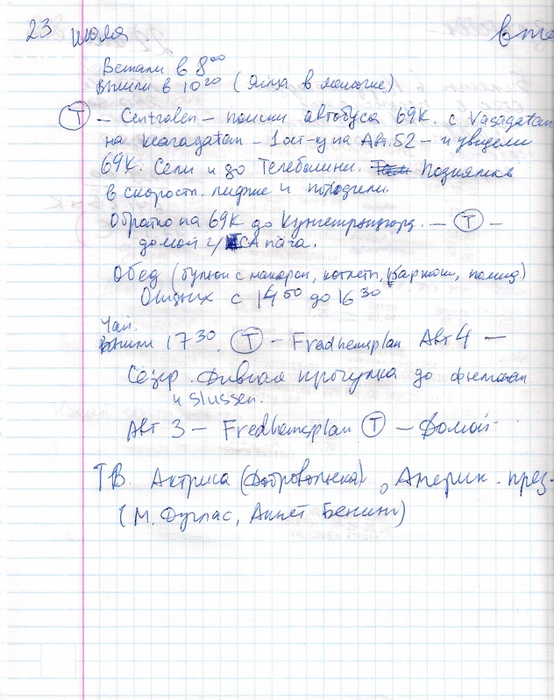 23 июля. вто
Встали в 8⁰⁰
Вышли в 10²⁰ (Яйца в
Ⓣ – Centralen – поиски автобуса 69К. с Vasagatan
на – 1 ост-у на Авт. 52 – и увидели
69К. Сели и до Телебашни. Поднялись
в скоростн. лифте и походили.
Обратно на 69К до – Ⓣ –
домой ICA пага.
Обед (бульон с макарон, котлеты, картош, помид)
Отдых с 14⁵⁰ до 16³⁰
Чай.
Вышли 17³⁰. Ⓣ – Fradhemsplan Авт 4 –
прогулка до
и Slussen.
Авт 3 – Fredhemsplan Ⓣ – Домой.
ТВ. Актриса (Добровольска), Америк. през-
(М. Дуглас, Аннет Бенинг)